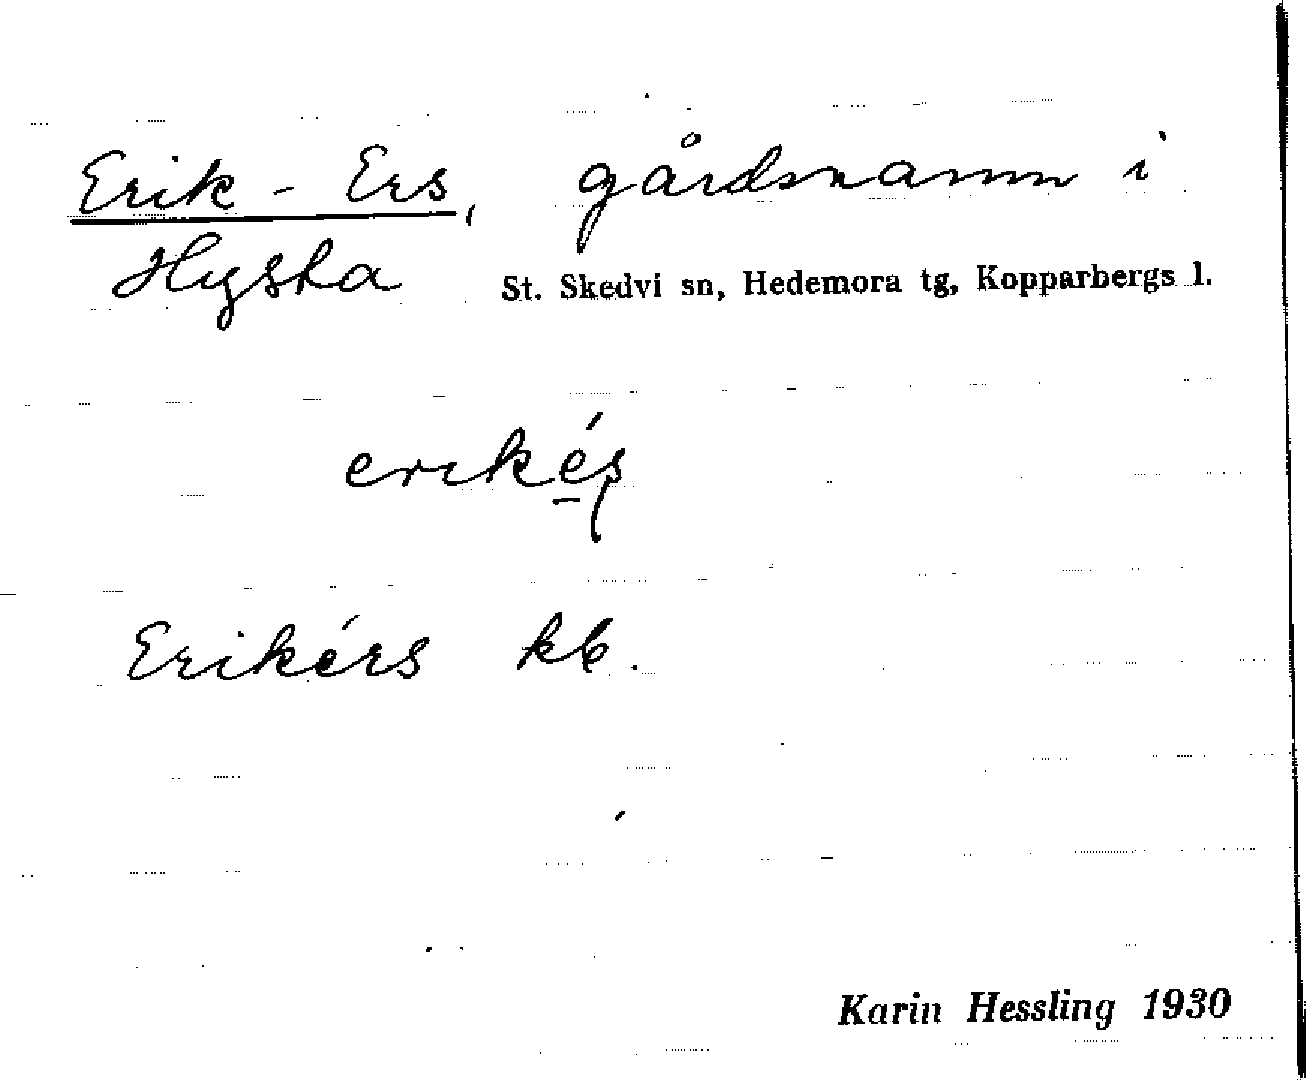 Erik-Ers, gårdsnamn i
Hyska St. Skedvi sn, Hedemora tg, Kopparbergs l.
erikés
Erikérs kb.
Karin Hessling 1930